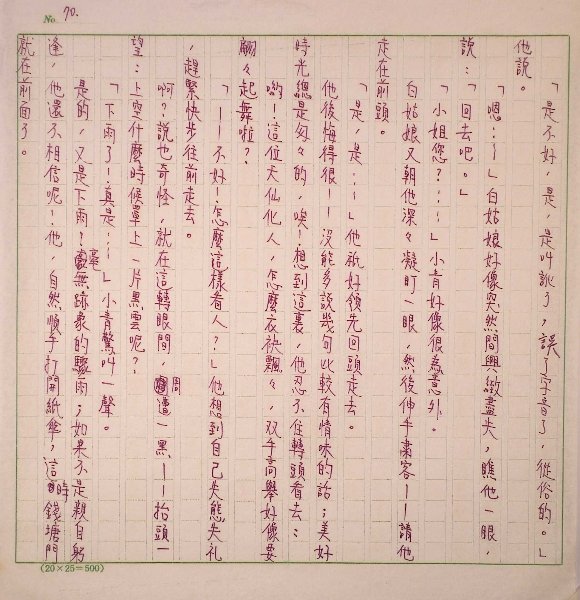 No. 70.
「是不好，是，是叫訛了，誤了字音了，從俗的。」
他說。
「嗯…」白姑娘好像突然間興緻盡失，瞧他一眼，
說：「回去吧。」
「小姐您？…」小青好像很為意外。
白姑娘又朝他深々凝盯一眼，然後伸手肅客——請他
走在前頭。
「是，是…」他祇好領先回頭走去。
他後悔得很——沒能多說幾句比較有情味的話；美好
時光總是匆々的，唉！想到這裏，他忍不住轉頭看去：
喲！這位天仙化人，怎麼衣袂飄々，双手高舉好像要
翩々起舞啦？
「——不好！怎麼這樣看人？」他想到自己失態失礼
，趕緊快步往前走去。
啊？說也奇怪，就在這轉眼間，周遭一黑——抬頭一
望：上空什麼時候罩上一片黑雲呢？
「下雨了！真是…」小青驚叫一聲。
是的，又是下雨？毫無跡象的驟雨；如果不是親自躬
逢，他還不相信呢？他，自然順手打開紙傘，這時錢塘門
就在前面了。
(20×25=500)